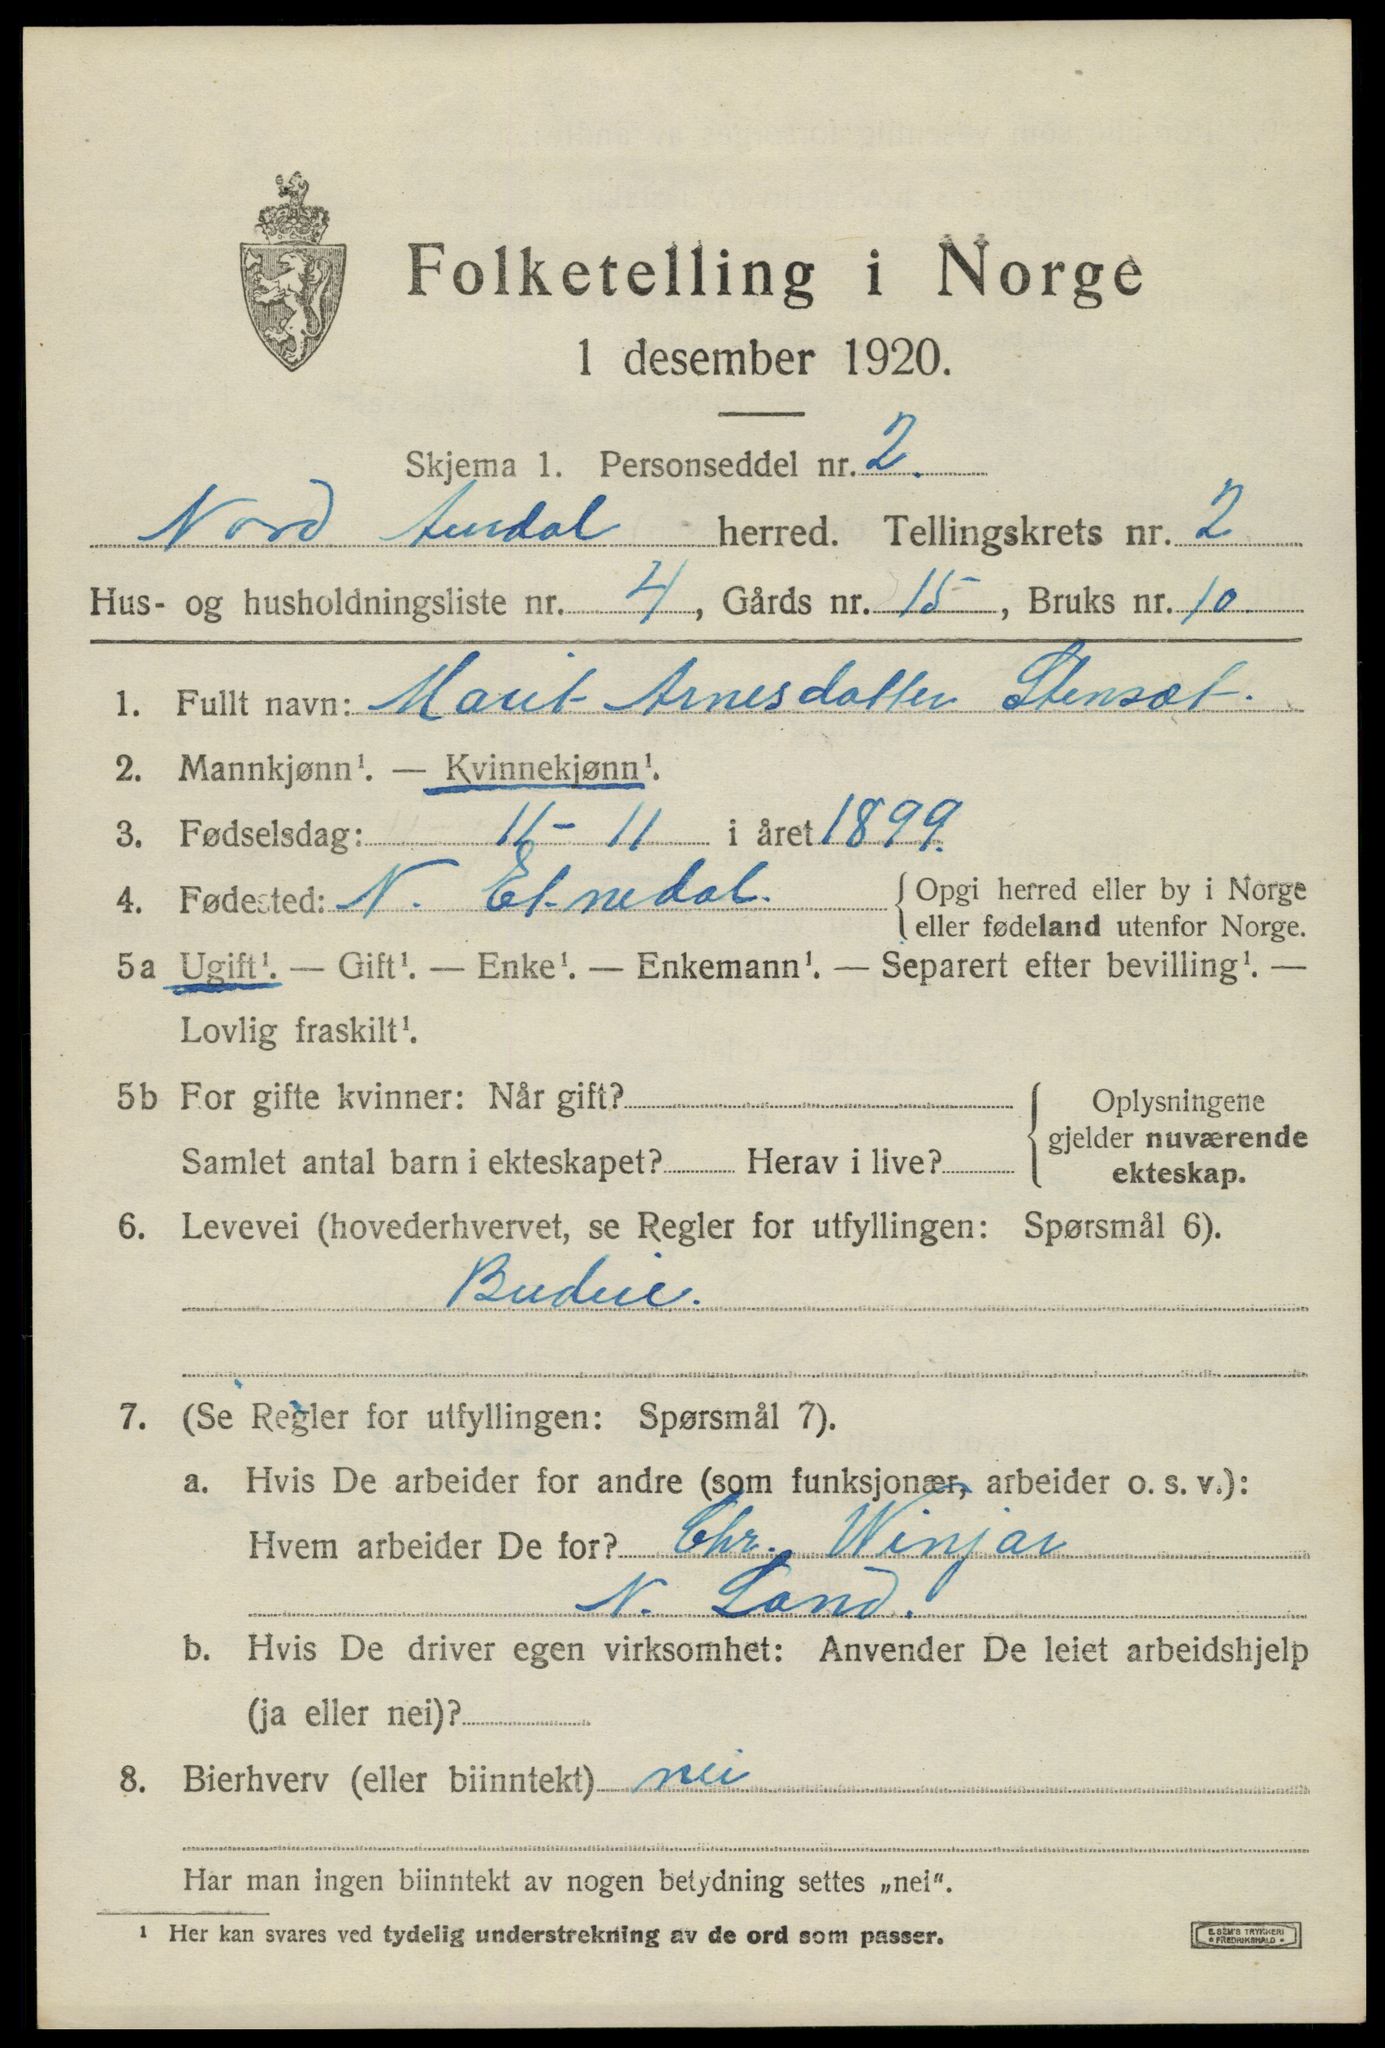 Folketelling i Norge
1 desember 1920.
Skjema 1. Personseddel nr. 2.
Nord Aurdal herred. Tellingskrets nr. 2
Hus- og husholdningsliste nr. 4, Gårds nr. 15, Bruks nr. 10
1. Fullt navn: Marit Arnesdatter Stensæt.
2. Mannkjønn¹. — Kvinnekjønn¹.
3. Fødselsdag: 11 - 11 i året 1899.
4. Fødested: N. Etnedal. { Opgi herred eller by i Norge
eller fødeland utenfor Norge.
5a Ugift¹. — Gift¹. — Enke¹. — Enkemann¹. — Separert efter bevilling¹. —
Lovlig fraskilt¹.
5b For gifte kvinner: Når gift? { Oplysningene
gjelder nuværende
Samlet antal barn i ekteskapet? Herav i live?
ekteskap.
6. Levevei (hovederhvervet, se Regler for utfyllingen: Spørsmål 6).
Budeie.
7. (Se Regler for utfyllingen: Spørsmål 7).
a. Hvis De arbeider for andre (som funksjonær, arbeider o. s. v.):
Hvem arbeider De for? Chr. Winjar
N. Land.
b. Hvis De driver egen virksomhet: Anvender De leiet arbeidshjelp
(ja eller nei)?
8. Bierhverv (eller biinntekt) nei
Har man ingen biinntekt av nogen betydning settes „nei“.
¹ Her kan svares ved tydelig understrekning av de ord som passer.
E. SEM'S TRYKKERI
FREDRIKSHALD